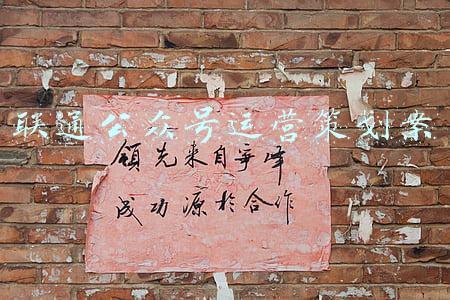 联通公众号运营策划案
领先来自争峰
成功源於合作